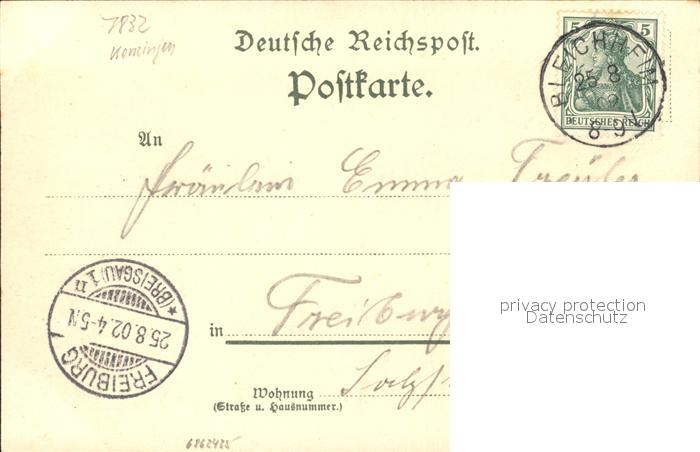 7832
Kenzingen
Deutsche Reichspost.
Postkarte.
5 5
DEUTSCHES REICH
BLEICHHEIM
25 8
02
8-9
An
Fräulein Emma Treyler
FREIBURG
25.8.02.4-5.N
*(BREISGAU)1 n
in Freiburg
Wohnung
(Straße u. Hausnummer.)
privacy protection
Datenschutz
6862425